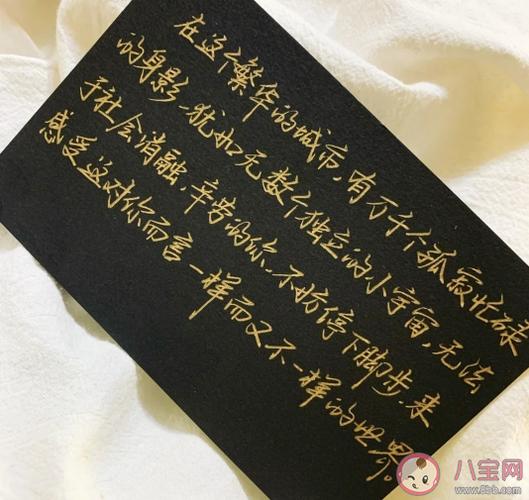 在这个繁华的城市,有万千个孤寂忙碌
的身影,犹如无数个独立的小宇宙,无法
于社会消融,辛劳的你,不妨停下脚步,来
感受这对你而言一样而又不一样的世界。
八宝网
www.8bb.com